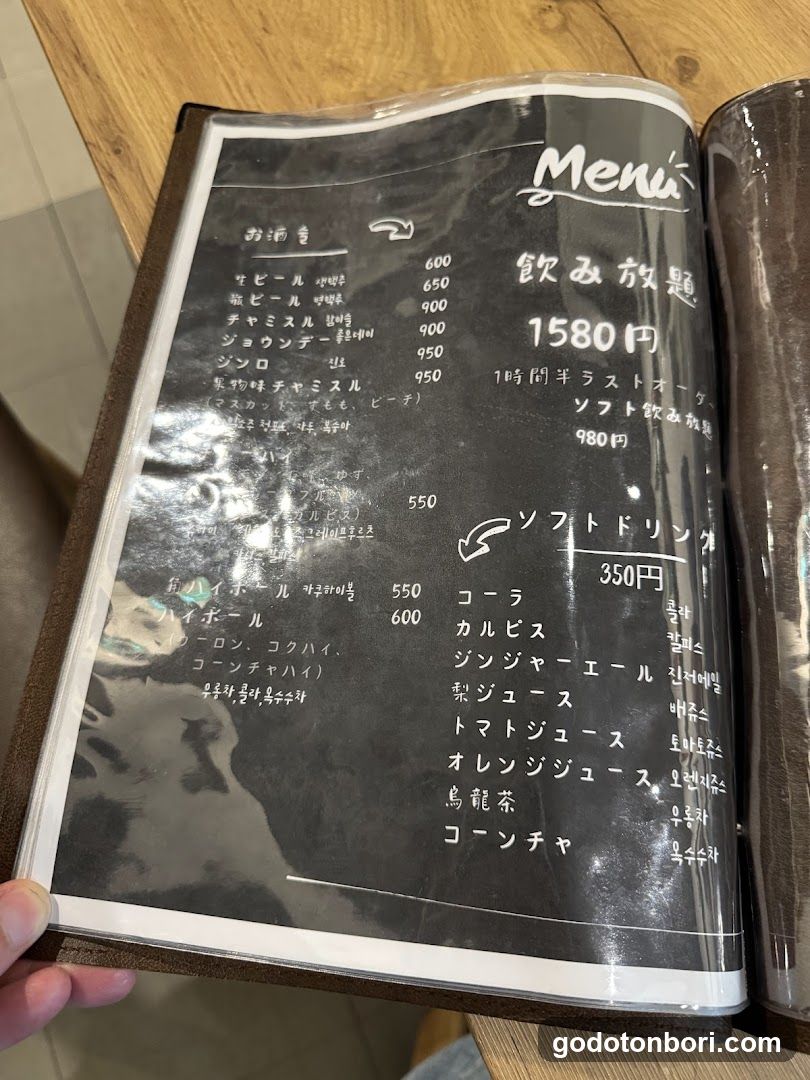 Menu
お酒
生ビール 생맥주 600
瓶ビール 병맥주 650
チャミスル 참이슬 900
ジョウンデー 좋은데이 900
ジンロ 진로 950
果物味チャミスル 950
(マスカット、すもも、ピーチ)
청포도, 자두, 복숭아
ーハイ
ゆず、
フル
カルピス) 550
角ハイボール 카쿠하이볼 550
ハイボール 600
(ウーロン、コクハイ、
コーンチャハイ)
우롱차,콜라,옥수수차
飲み放題
1580円
1時間半ラストオーダ
ソフト飲み放題
980円
ソフトドリンク
350円
コーラ 콜라
カルピス 칼피스
ジンジャーエール 진저에일
梨ジュース 배쥬스
トマトジュース 토마토쥬스
オレンジジュース 오렌지쥬스
烏龍茶 우롱차
コーンチャ 옥수수차
godotonbori.com